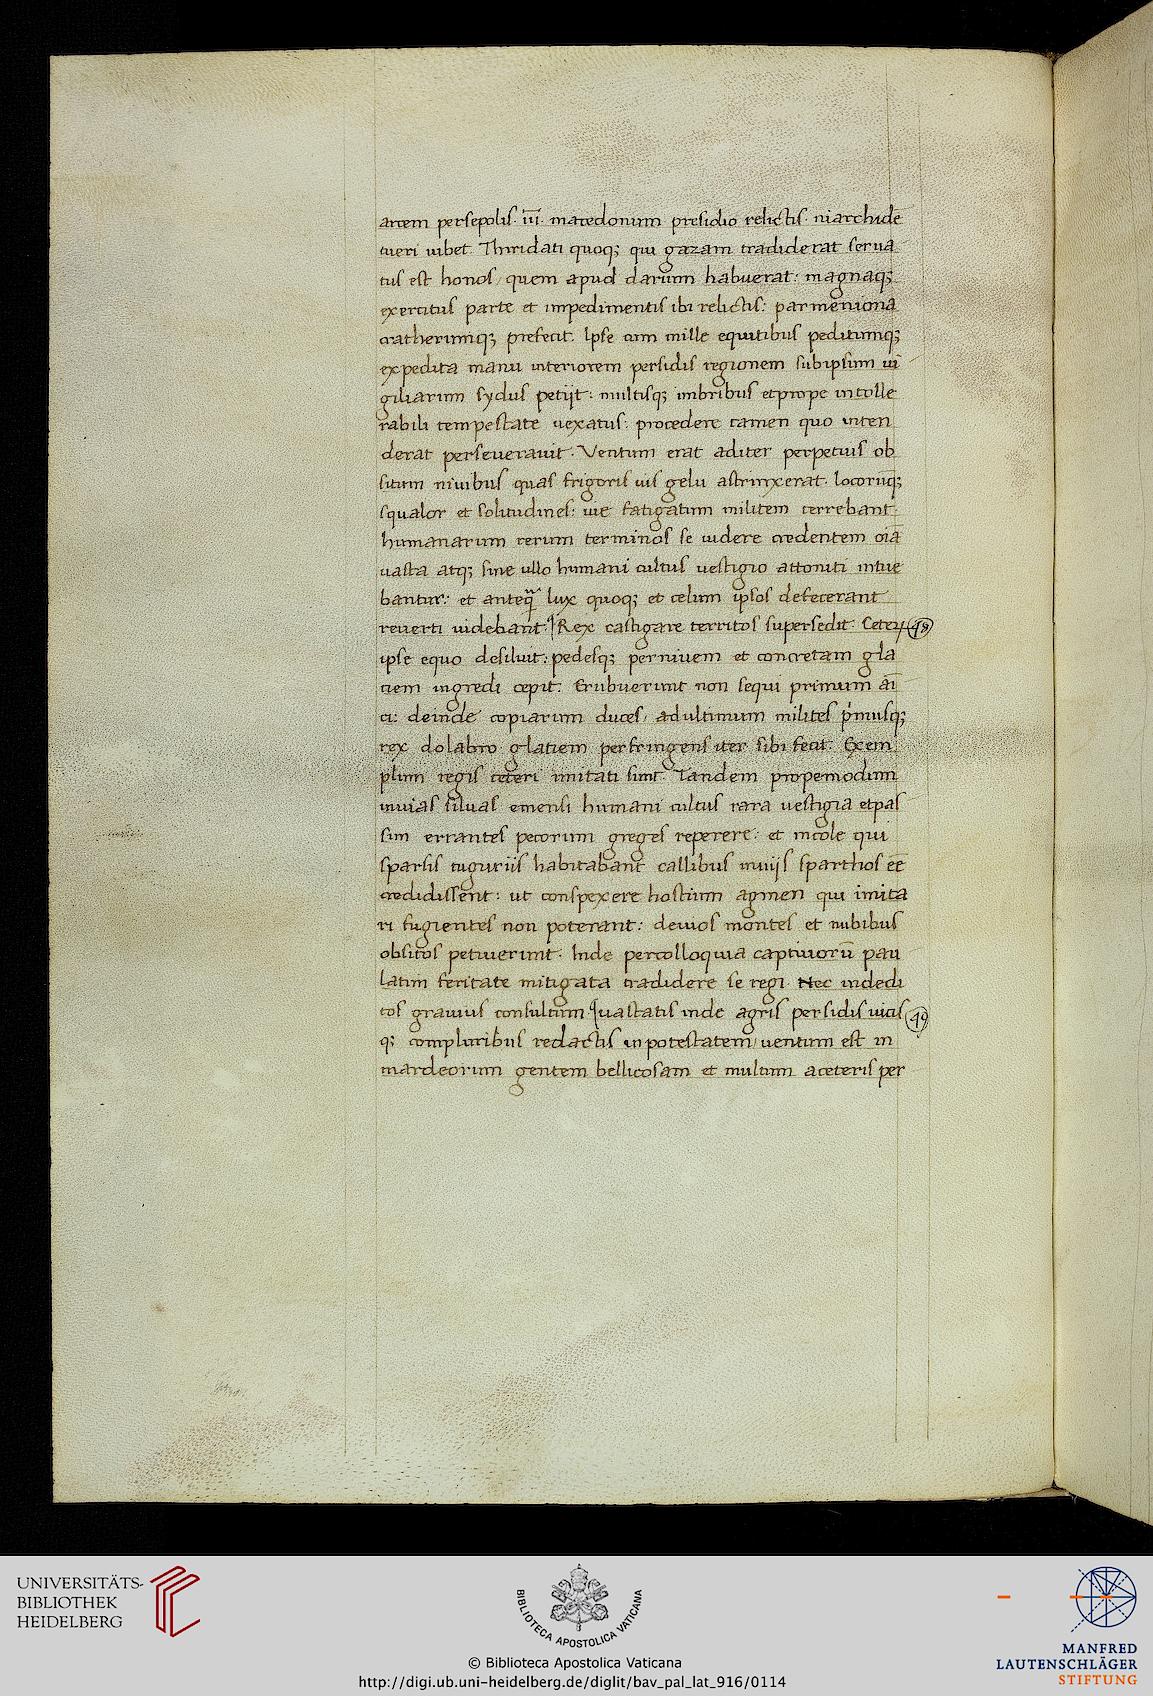 arcem persepolis. iii̅. macedonum presidio relictis. niarchidē
tueri iubet. Thiridati quoq; qui gazam tradiderat serua
tus est honos, quem apud darium habuerat: magnaq;
exercitus parte et impedimentis ibi relictis: parmeniona
cratherumq; prefecit. Ipse cum mille equitibus peditumq;
expedita manu interiorem persidis regionem subipsum ui
giliarum sydus petijt: multisq; imbribus etprope intolle
rabili tempestate uexatus: procedere tamen quo inten
derat perseuerauit. Ventum erat aditer perpetuis ob
situm niuibus quas frigoris uis gelu astrinxerat. locorūq;
squalor et solitudines: uie fatigatum militem terrebant.
humanarum rerum terminos se uidere credentem oīa
uasta atq; sine ullo humani cultus uestigio attoniti intue
bantur: et anteq̄ lux quoq; et celum ipsos defecerant
reuerti iubebant. Rex castigare territos supersedit. Ceteꝝ 48
ipse equo desiluit: pedesq; perniuem et concretam gla
ciem ingredi cepit. Erubuerunt non sequi primum ai
ci: deinde copiarum duces, adultimum milites pͥmusq;
rex dolabro glaciem perfringens iter sibi fecit. Exem
plum regis ceteri imitati sunt. Tandem propemodum
inuias siluas emensi humani cultus rara uestigia etpas
sim errantes pecorum greges reperere: et incole qui
sparsis tuguriis habitabant callibus inuijs sparthos eē
credidissent: ut conspexere hostium agmen qui imita
ri fugientes non poterant: deuios montes et nubibus
obsitos petiuerunt. Inde percolloquia captiuorū pau
latim feritate mitigata tradidere se regi. Nec indedi
tos grauius consultum uastatis inde agris persidis uicis 49
q; compluribus redactis inpotestatem, uentum est in
mardeorum gentem bellicosam et multum aceteris per
UNIVERSITÄTS-
BIBLIOTHEK
HEIDELBERG
BIBLIOTECA APOSTOLICA VATICANA
MANFRED
LAUTENSCHLÄGER
STIFTUNG
© Biblioteca Apostolica Vaticana
http://digi.ub.uni-heidelberg.de/diglit/bav_pal_lat_916/0114